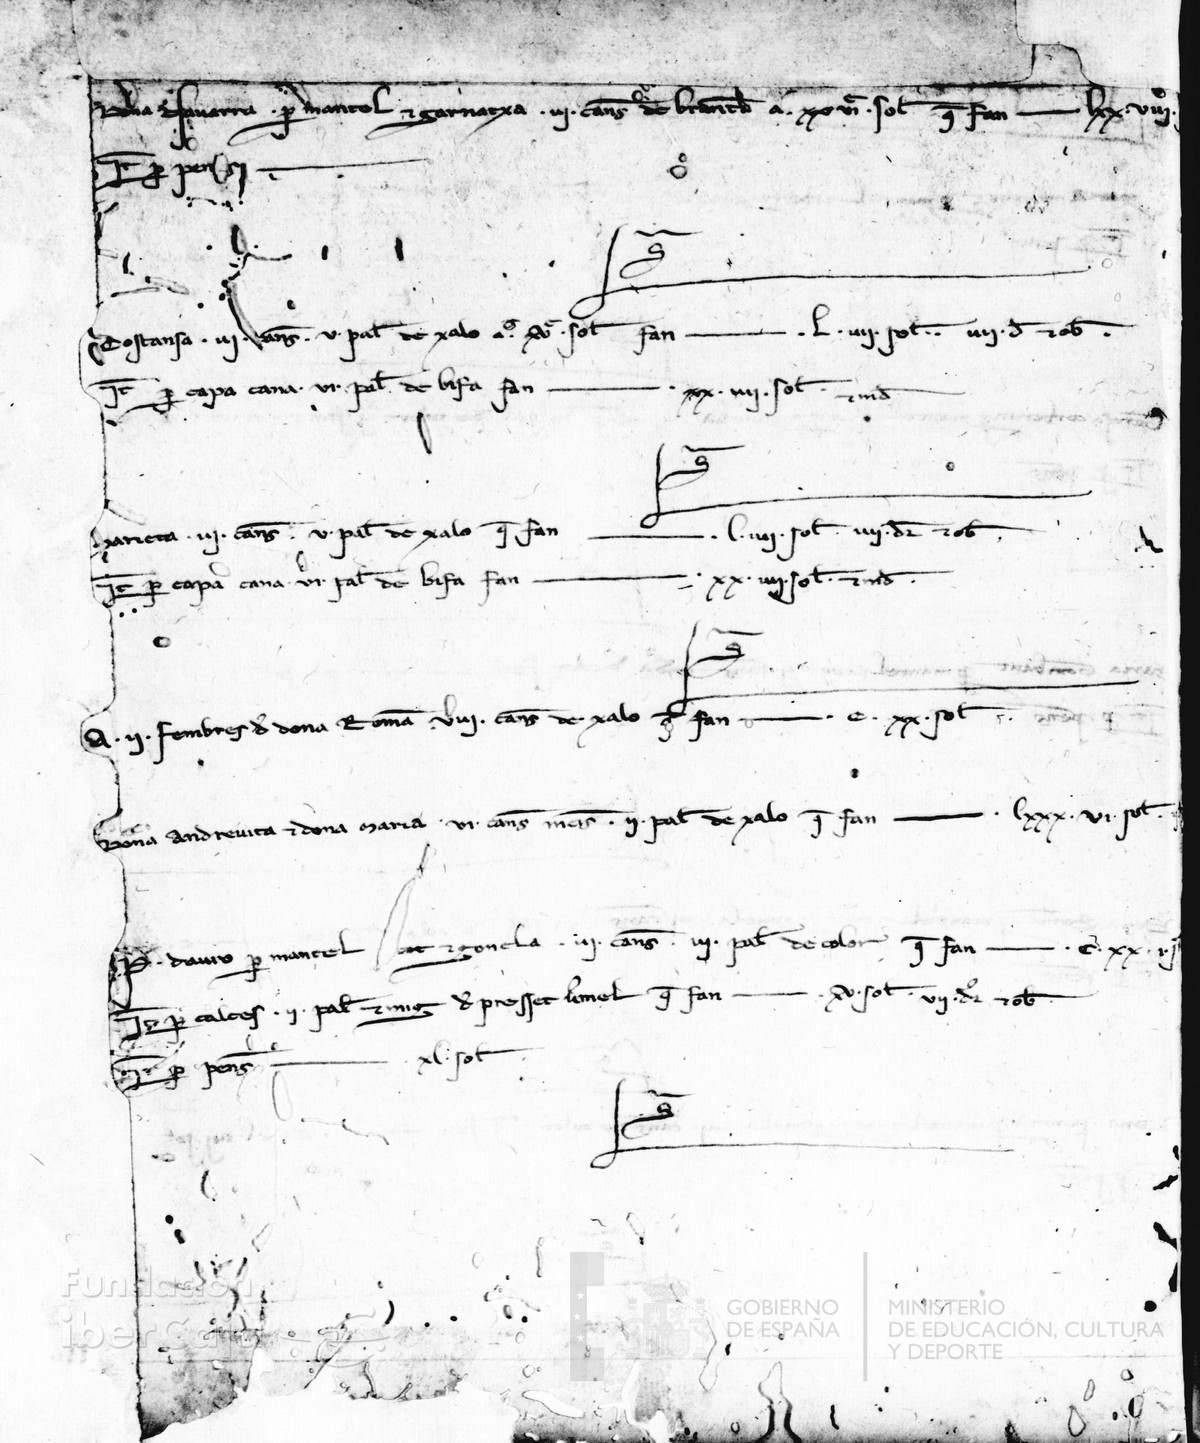 Dona Navarra · p mantel 𝇋 garnatxa · vi · cans de a · xxvi · sol q fan lxx · viii ·
It p
Costansa · vi · cans · v · pal de xalo a · xv · sol fan · L · vii · sol · vii · d 𝇋 ob ·
It p capa cana · vi · pal de bifa fan · xx · iiii · sol ·
Marieta · vi · cans · v · pal de xalo q fan · l · vii · sol vii · dr 𝇋 ob ·
It p capa cana vi pal de bifa fan · xx · iiii · sol ·
A · ii · fembres d dona Roma viii · cans de xalo q fan · C · xx · sol
Dona Andrevica 𝇋 dona Maria · vi · cans meis · ii · pal de xalo q fan · lxxx · vi · sol ·
P · p mantel 𝇋 gonela · iii · cans · iii · pal de color q fan · C · xx ·
It p calces · ii · pal 𝇋 mig d presset vmel q fan · xv · sol · vii · dr 𝇋 ob
It p pens · xl · sol
Fundación
iberCaja
GOBIERNO
DE ESPAÑA
MINISTERIO
DE EDUCACIÓN, CULTURA
Y DEPORTE